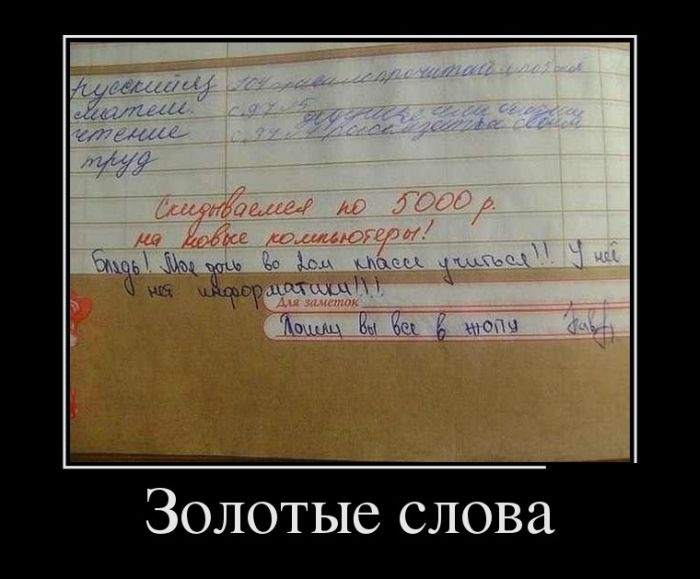 Русский яз 104
матем. с. 97
чтение с. 34
труд
Скидываемся по 5000 р.
на новые компьютеры!
Блядь! Моя дочь во 2ом классе учиться!! У неё
нет информатики!!!
Для заметок
Пошли вы все в жопу
Золотые слова